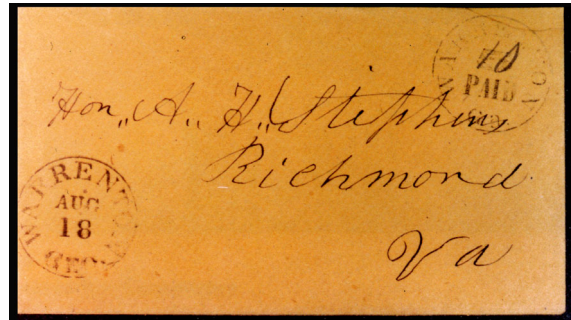 WARRENTON
10
PAID
Hon,, A,, H,, Stephens
Richmond
Va
WARRENTON
AUG
18
GEO.